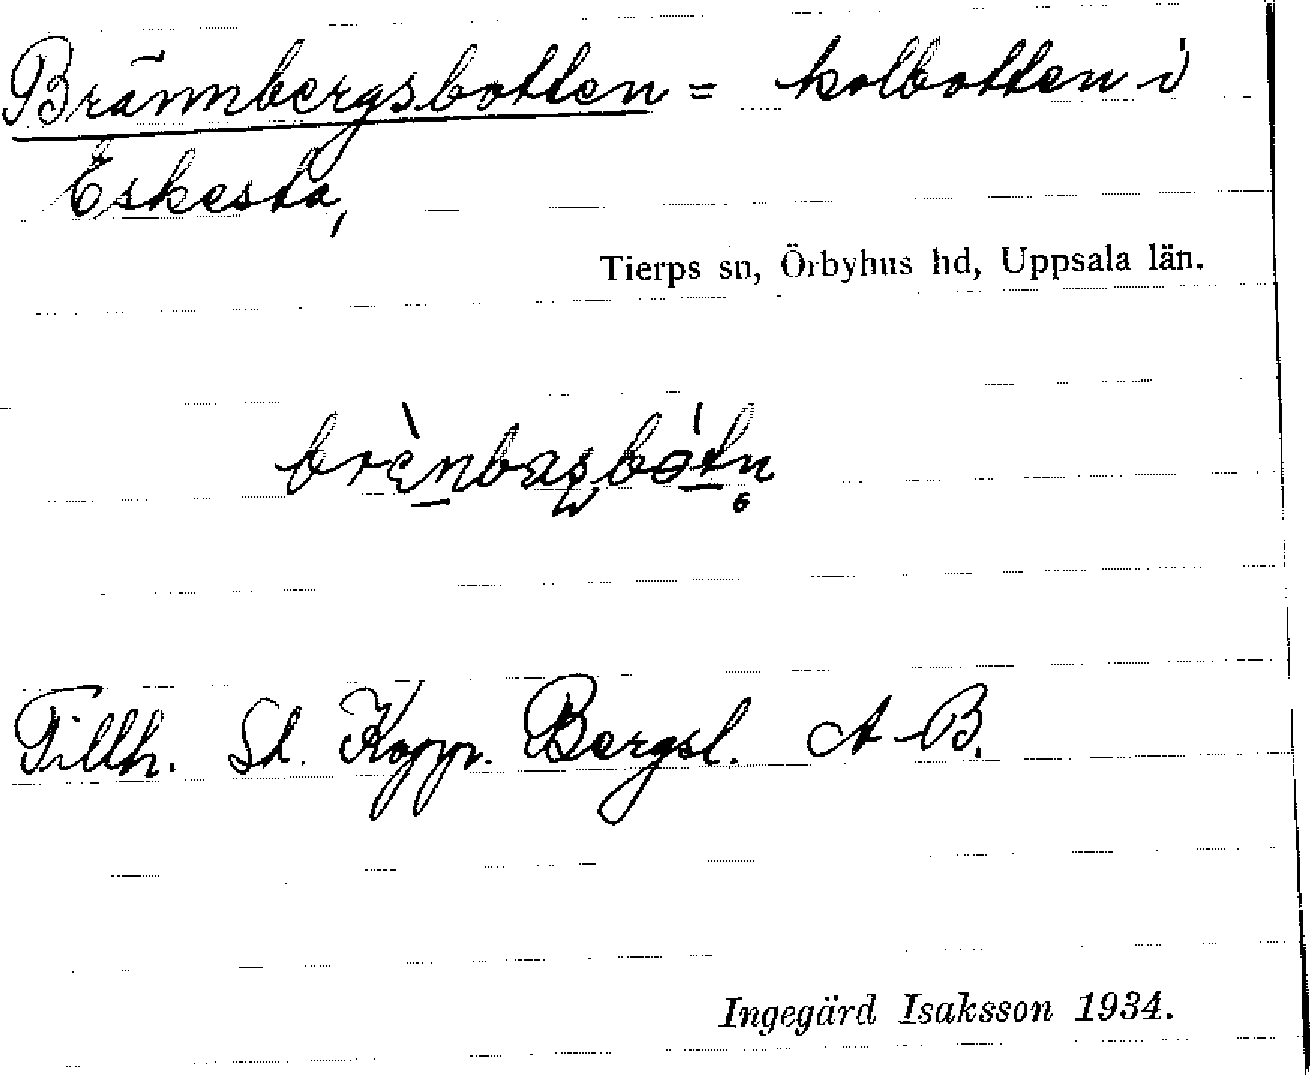 Brännbergsbotten = kolbotten i
Eskesta,
Tierps sn, Örbyhus hd, Uppsala län.
Tillh. St. Kopp. Bergsl. A-B.
Ingegärd Isaksson 1934.